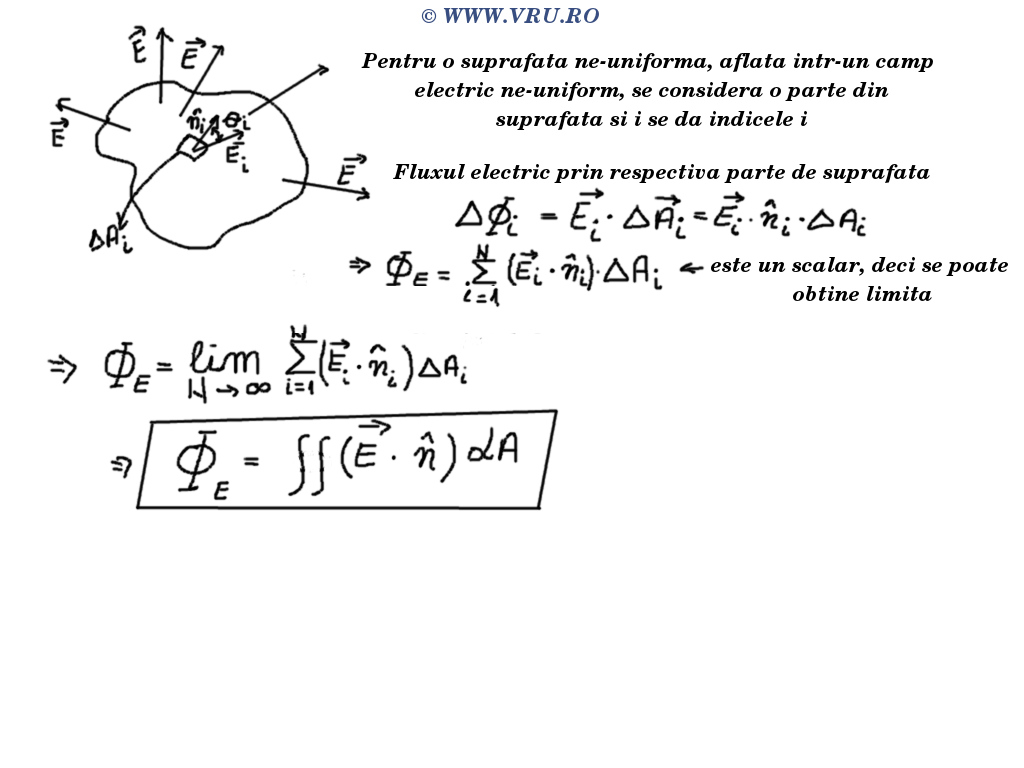 © WWW.VRU.RO
Pentru o suprafata ne-uniforma, aflata intr-un camp
electric ne-uniform, se considera o parte din
suprafata si i se da indicele i
E⃗
E⃗
E⃗
n̂ᵢ θᵢ
E⃗ᵢ
E⃗
ΔAᵢ
Fluxul electric prin respectiva parte de suprafata
ΔΦᵢ = E⃗ᵢ · ΔA⃗ᵢ = E⃗ᵢ · n̂ᵢ · ΔAᵢ
⇒ Φ_E = Σ_{i=1}^{N} (E⃗ᵢ · n̂ᵢ) · ΔAᵢ ← este un scalar, deci se poate
obtine limita
⇒ Φ_E = lim_{N→∞} Σ_{i=1}^{N} (E⃗ᵢ · n̂ᵢ) ΔAᵢ
⇒ Φ_E = ∫∫ (E⃗ · n̂) dA